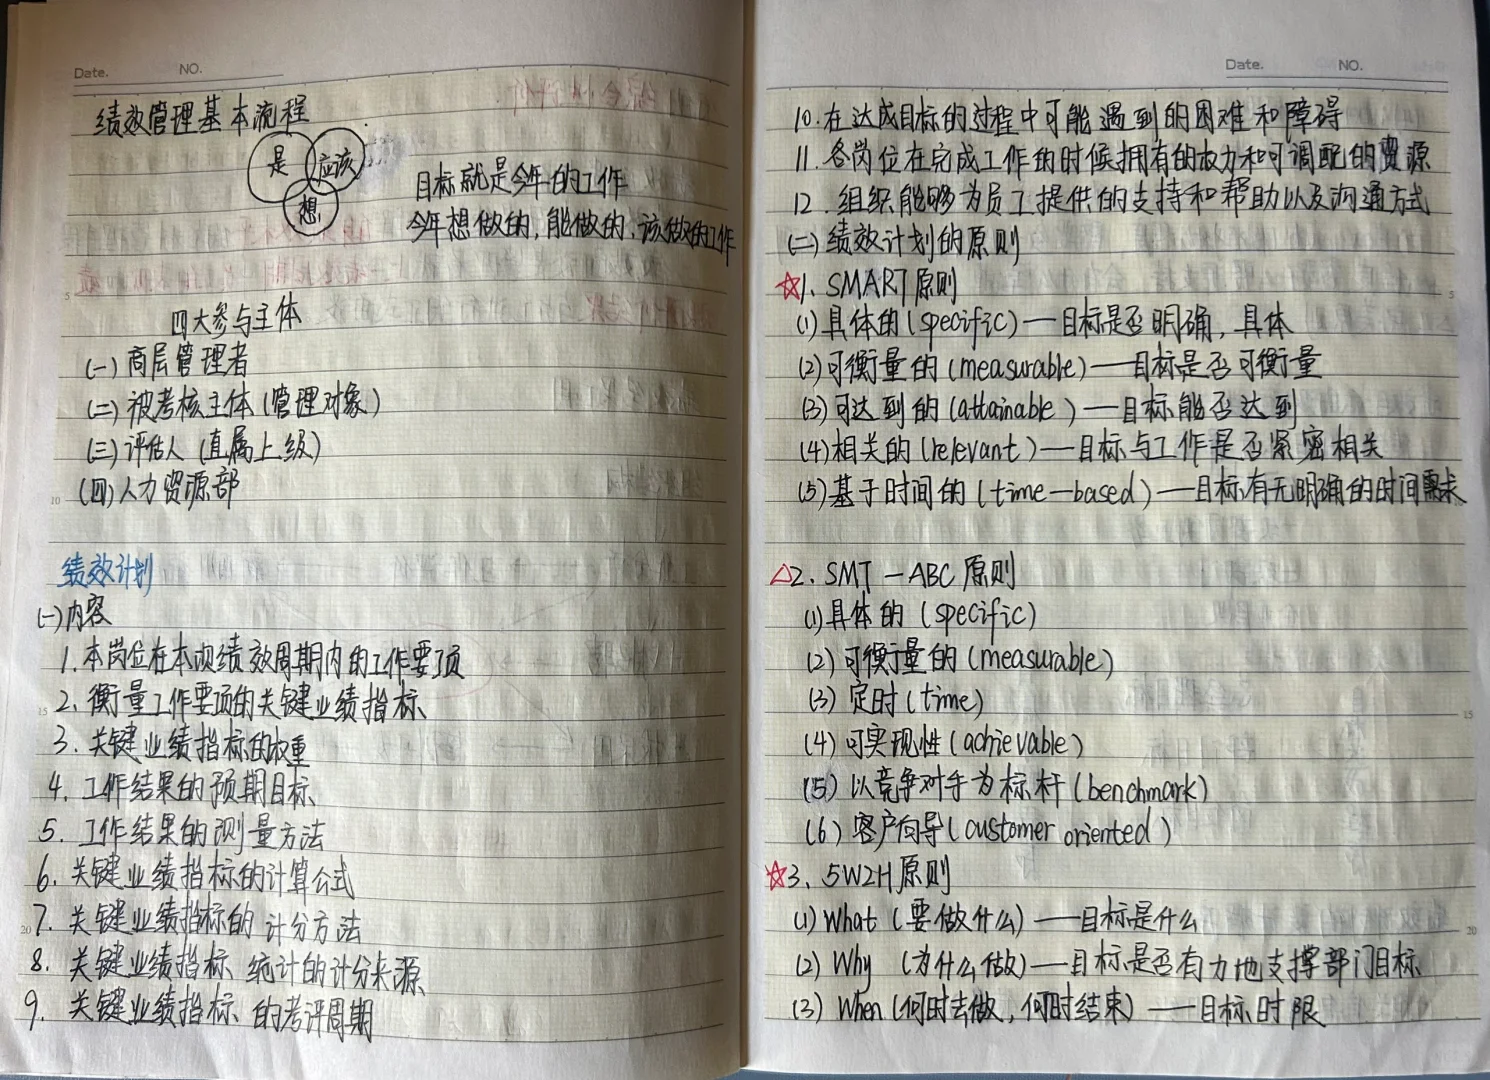 Date. NO.
绩效管理基本流程
是 应该
想
目标就是今年的工作
今年想做的,能做的,该做的工作
四大参与主体
(一) 高层管理者
(二) 被考核主体(管理对象)
(三) 评估人(直属上级)
(四) 人力资源部
绩效计划
(一)内容
1. 本岗位在本次绩效周期内的工作要项
2. 衡量工作要项的关键业绩指标
3. 关键业绩指标的权重
4. 工作结果的预期目标
5. 工作结果的测量方法
6. 关键业绩指标的计算公式
7. 关键业绩指标的计分方法
8. 关键业绩指标统计的计分来源
9. 关键业绩指标的考评周期
Date. NO.
10. 在达成目标的过程中可能遇到的困难和障碍
11. 各岗位在完成工作的时候拥有的权力和可调配的资源
12. 组织能够为员工提供的支持和帮助以及沟通方式
(二) 绩效计划的原则
☆1. SMART原则
(1) 具体的(specific)——目标是否明确,具体
(2) 可衡量的(measurable)——目标是否可衡量
(3) 可达到的(attainable)——目标能否达到
(4) 相关的(relevant)——目标与工作是否紧密相关
(5) 基于时间的(time—based)——目标有无明确的时间需求
△2. SMT—ABC原则
(1) 具体的(specific)
(2) 可衡量的(measurable)
(3) 定时(time)
(4) 可实现性(achievable)
(5) 以竞争对手为标杆(benchmark)
(6) 客户向导(customer oriented)
☆3. 5W2H原则
(1) What(要做什么)——目标是什么
(2) Why(为什么做)——目标是否有力地支撑部门目标
(3) When(何时去做,何时结束)——目标时限